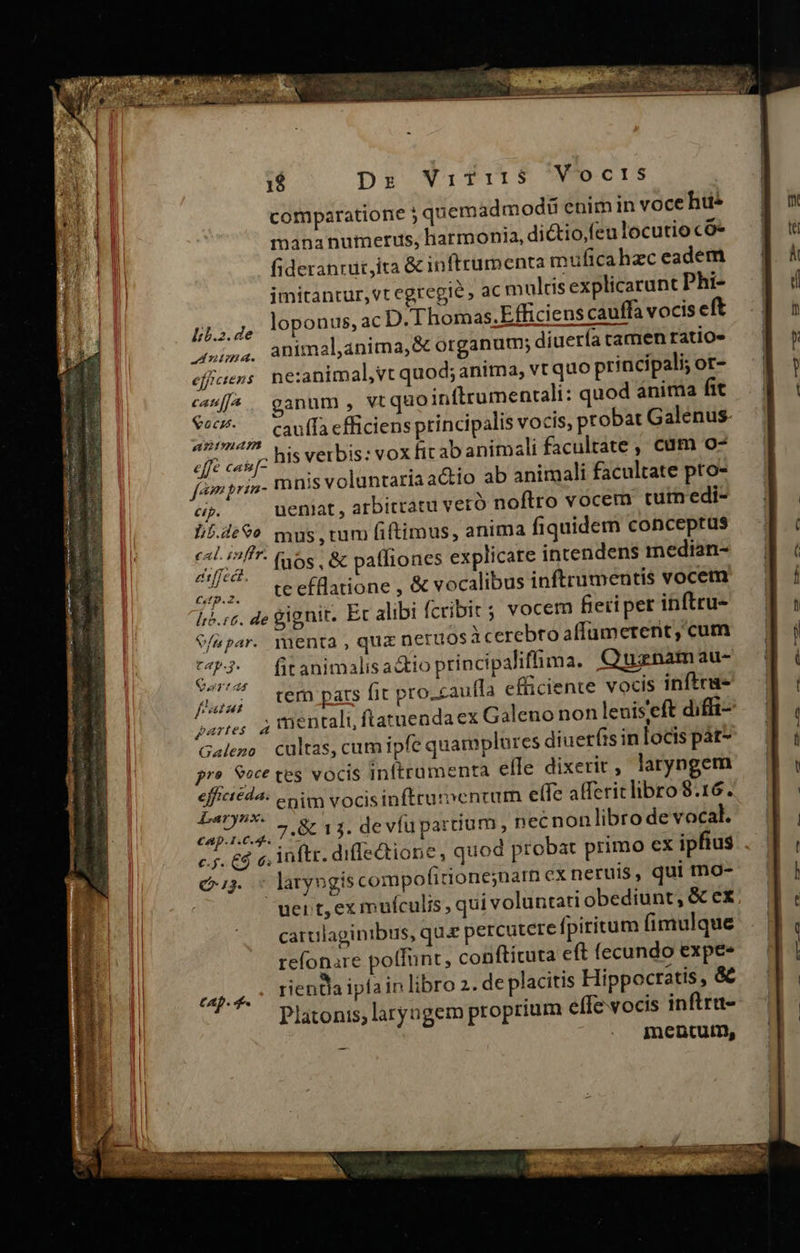 18 De Vitiis Vocis
comparatione; quemadmodũ enim in voce hu-
mana numerus, harmonia, dictio, seu locutio cõ-
siderantur, ita & instrumenta musica hæc eadem
imitantur, vt egregiè, ac multis explicarunt Phi-
lib.2.de loponus, ac D. Thomas. Efficiens caussa vocis est
Anima. animal, anima, & organum; diuersa tamen ratio-
efficiens ne: animal, vt quod; anima, vt quo principali; or-
caussa ganum, vt quo instrumentali: quod anima sit
vocis. caussa efficiens principalis vocis, probat Galenus
animam his verbis: vox fit ab animali facultate, cum o-
esse caus-
sam prin- mnis voluntaria actio ab animali facultate pro-
cip. ueniat, arbitratu verò nostro vocem tum edi-
lib.de vo mus, tum sistimus, anima siquidem conceptus
cal. instr. suos, & passiones explicare intendens median-
dissect. te efflatione, & vocalibus instrumentis vocem
cap.2.
lib.16. de gignit. Et alibi scribit; vocem fieri per instru-
vsu par. menta, quæ neruos à cerebro assumerent, cum
cap.3. sit animalis actio principalissima. Quænam au-
varias tem pars sit pro caussa efficiente vocis instru-
statui
partes à mentali, statuenda ex Galeno non leuis est diffi-
Galeno cultas, cum ipse quamplures diuersis in locis par-
pro voce tes vocis instrumenta esse dixerit, laryngem
efficiēda. enim vocis instrumentum esse asserit libro 8.16.
Larynx. 7. & 13. de vsu partium, nec non libro de vocal.
cap.1.c.4.
c.5. & 6. instr. dissectione, quod probat primo ex ipsius
& 13. laryngis compositione; nam ex neruis, qui mo-
uent, ex musculis, qui voluntati obediunt, & ex
cartilaginibus, quæ percutere spiritum simulque
resonare possunt, constituta est secundo expe-
cap.4. rientia ipsa in libro 2. de placitis Hippocratis, &
Platonis, laryngem proprium esse vocis instru-
mentum,